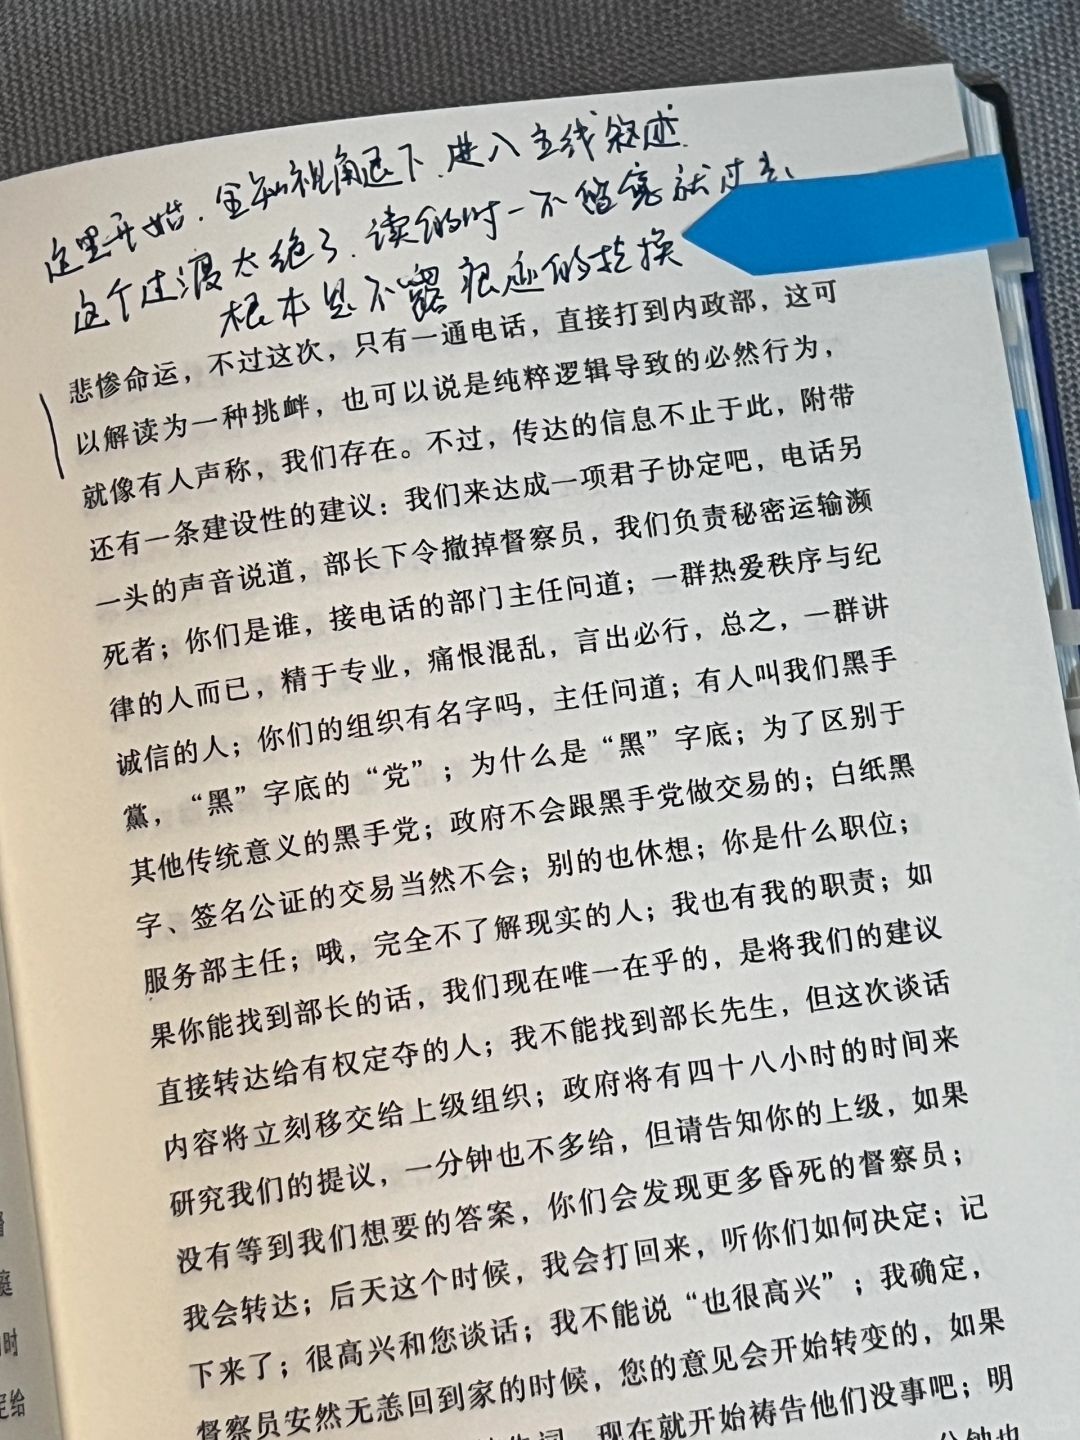 这里开始.全知视角退下.进入主线叙述.
这个过渡太绝了.读的时一不留意就过去
根本是不露痕迹的转换
悲惨命运，不过这次，只有一通电话，直接打到内政部，这可
以解读为一种挑衅，也可以说是纯粹逻辑导致的必然行为，
就像有人声称，我们存在。不过，传达的信息不止于此，附带
还有一条建设性的建议：我们来达成一项君子协定吧，电话另
一头的声音说道，部长下令撤掉督察员，我们负责秘密运输濒
死者；你们是谁，接电话的部门主任问道；一群热爱秩序与纪
律的人而已，精于专业，痛恨混乱，言出必行，总之，一群讲
诚信的人；你们的组织有名字吗，主任问道；有人叫我们黑手
黨，“黑”字底的“党”；为什么是“黑”字底；为了区别于
其他传统意义的黑手党；政府不会跟黑手党做交易的；白纸黑
字、签名公证的交易当然不会；别的也休想；你是什么职位；
服务部主任；哦，完全不了解现实的人；我也有我的职责；如
果你能找到部长的话，我们现在唯一在乎的，是将我们的建议
直接转达给有权定夺的人；我不能找到部长先生，但这次谈话
内容将立刻移交给上级组织；政府将有四十八小时的时间来
研究我们的提议，一分钟也不多给，但请告知你的上级，如果
没有等到我们想要的答案，你们会发现更多昏死的督察员；
我会转达；后天这个时候，我会打回来，听你们如何决定；记
下来了；很高兴和您谈话；我不能说“也很高兴”；我确定，
督察员安然无恙回到家的时候，您的意见会开始转变的，如果
现在就开始祷告他们没事吧；明
分钟也
庭
时
定给